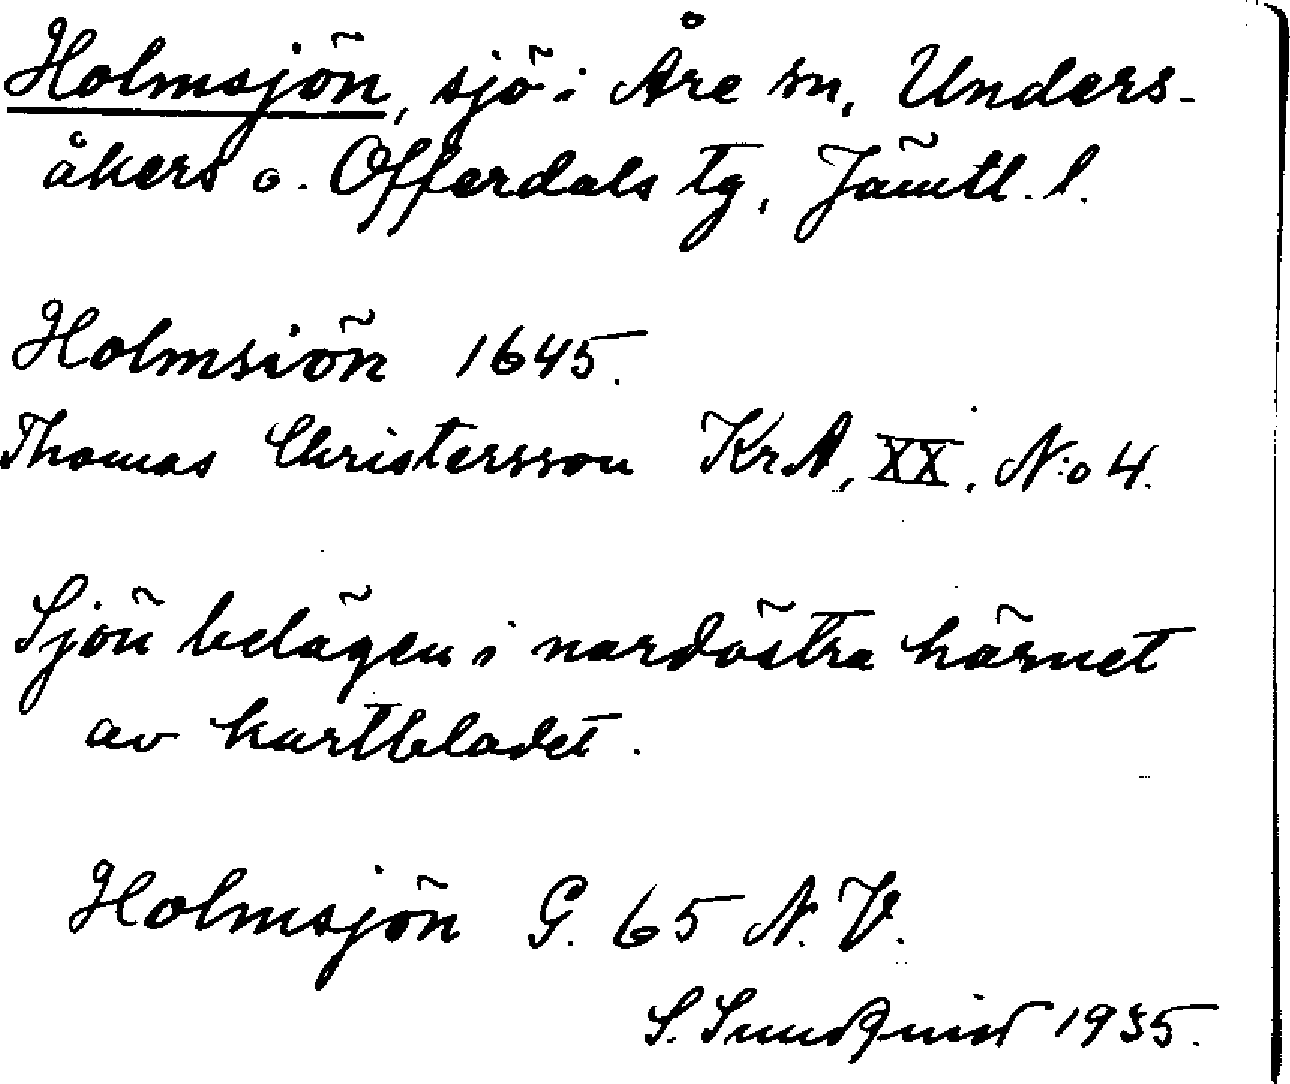 Holmsjön, sjö i Åre sn, Unders-
åkers o. Offerdals tg, Jämtl. l.
Holmsiön 1645.
Thomas Christersson KrA, XX, N:o 4.
Sjön belägen i nordöstra hörnet
av kartbladet.
Holmsjön G. 65 N.V.
S. Sundquist 1935.